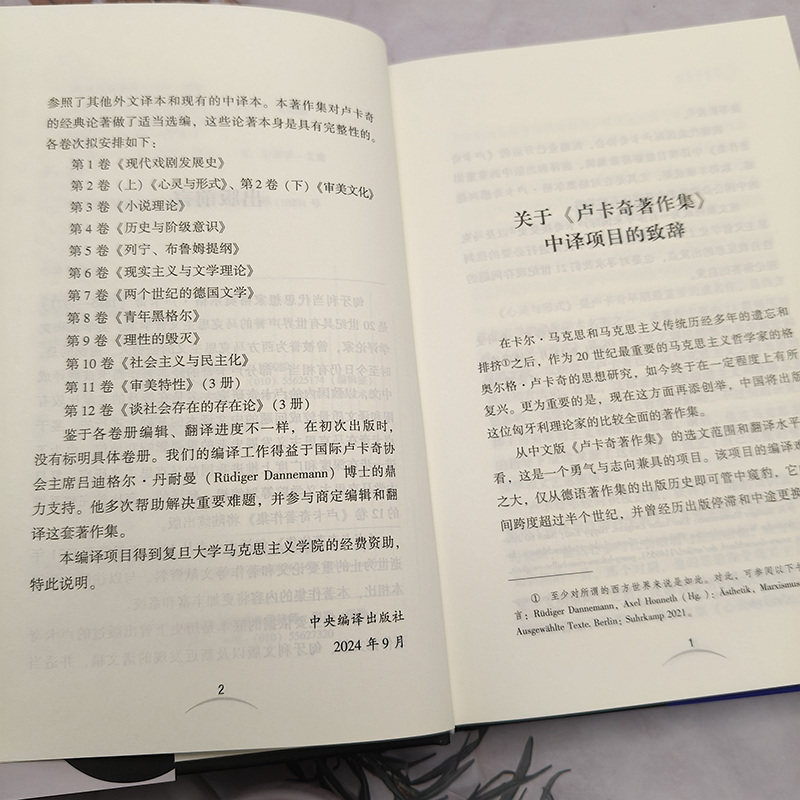 参照了其他外文译本和现有的中译本。本著作集对卢卡奇
的经典论著做了适当选编，这些论著本身是具有完整性的。
各卷次拟安排如下：
第 1 卷《现代戏剧发展史》
第 2 卷（上）《心灵与形式》、第 2 卷（下）《审美文化》
第 3 卷《小说理论》
第 4 卷《历史与阶级意识》
第 5 卷《列宁、布鲁姆提纲》
第 6 卷《现实主义与文学理论》
第 7 卷《两个世纪的德国文学》
第 8 卷《青年黑格尔》
第 9 卷《理性的毁灭》
第 10 卷《社会主义与民主化》
第 11 卷《审美特性》（3 册）
第 12 卷《谈社会存在的存在论》（3 册）
鉴于各卷册编辑、翻译进度不一样，在初次出版时，
没有标明具体卷册。我们的编译工作得益于国际卢卡奇协
会主席吕迪格尔·丹耐曼（Rüdiger Dannemann）博士的鼎
力支持。他多次帮助解决重要难题，并参与商定编辑和翻
译这套著作集。
本编译项目得到复旦大学马克思主义学院的经费资助，
特此说明。
中央编译出版社
2024 年 9 月
2
关于《卢卡奇著作集》
中译项目的致辞
在卡尔·马克思和马克思主义传统历经多年的遗忘和
排挤①之后，作为 20 世纪最重要的马克思主义哲学家的格
奥尔格·卢卡奇的思想研究，如今终于在一定程度上有所
复兴。更为重要的是，现在这方面再添创举，中国将出版
这位匈牙利理论家的比较全面的著作集。
从中文版《卢卡奇著作集》的选文范围和翻译水平
看，这是一个勇气与志向兼具的项目。该项目的编译难
之大，仅从德语著作集的出版历史即可管中窥豹，它
间跨度超过半个世纪，并曾经历出版停滞和中途更换
① 至少对所谓的西方世界来说是如此。对此，可参阅以下
言：Rüdiger Dannemann, Axel Honneth (Hg.): Ästhetik, Marxismus
Ausgewählte Texte, Berlin: Suhrkamp 2021.
1